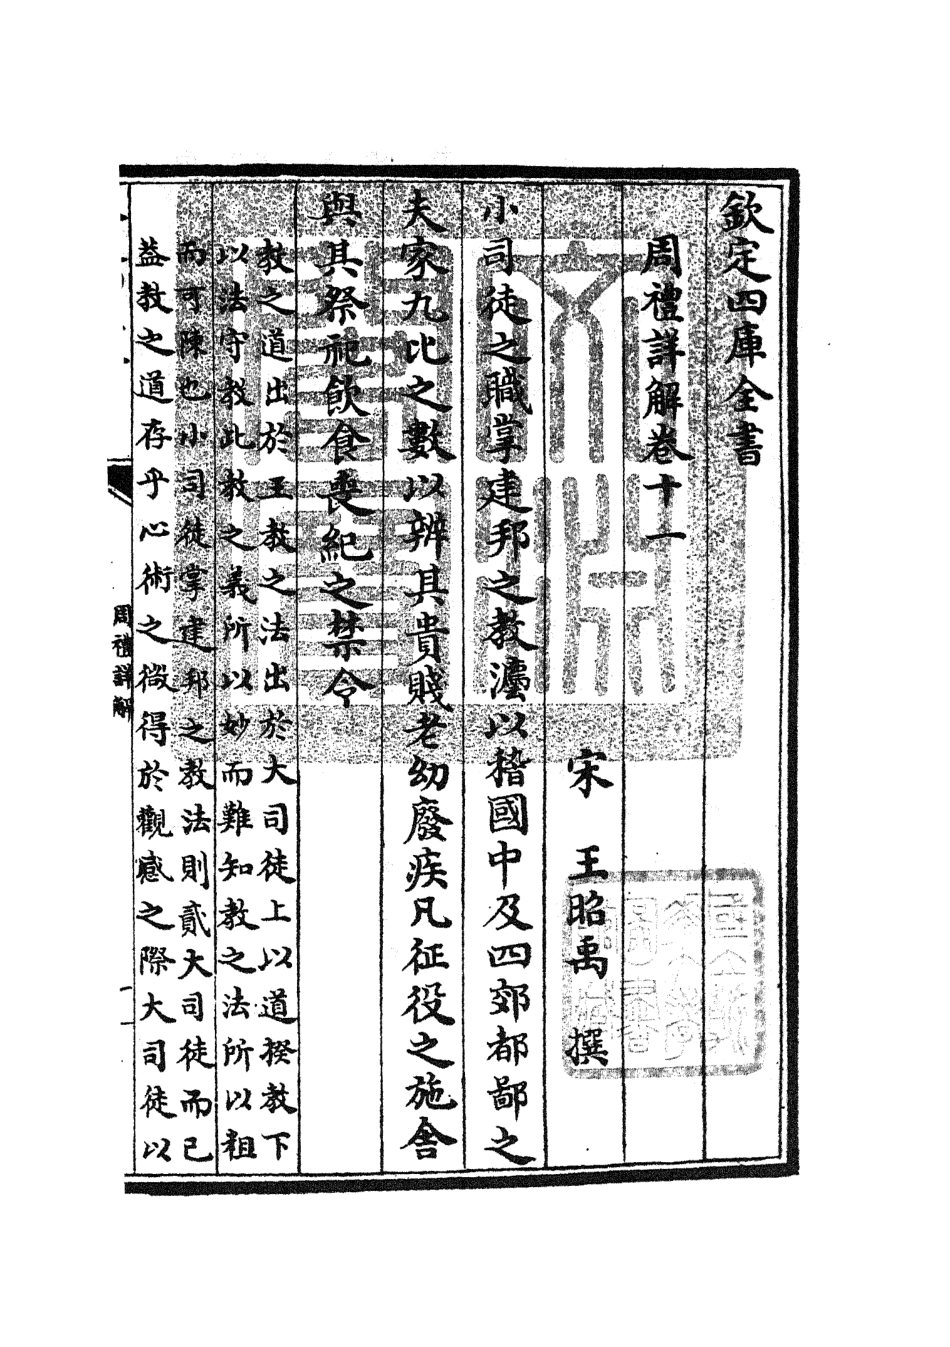 欽定四庫全書
周禮詳解卷十一
宋　王昭禹　撰
小司徒之職掌建邦之教灋以稽國中及四郊都鄙之
夫家九比之數以辨其貴賤老幼廢疾凡征役之施舍
與其祭祀飲食喪紀之禁令
教之道出於王教之法出於大司徒上以道揆教下
以法守教此教之義所以妙而難知教之法所以粗
而可陳也小司徒掌建邦之教法則貳大司徒而已
益教之道存乎心術之微得於觀感之際大司徒以
周禮詳解